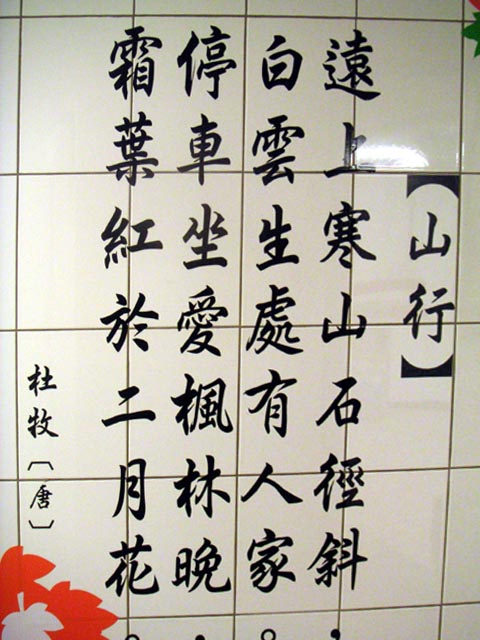 【山行】
遠上寒山石徑斜，
白雲生處有人家。
停車坐愛楓林晚，
霜葉紅於二月花。
杜牧〔唐〕